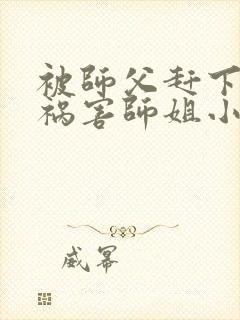 被師父赶下
祸害師姐小
威幂